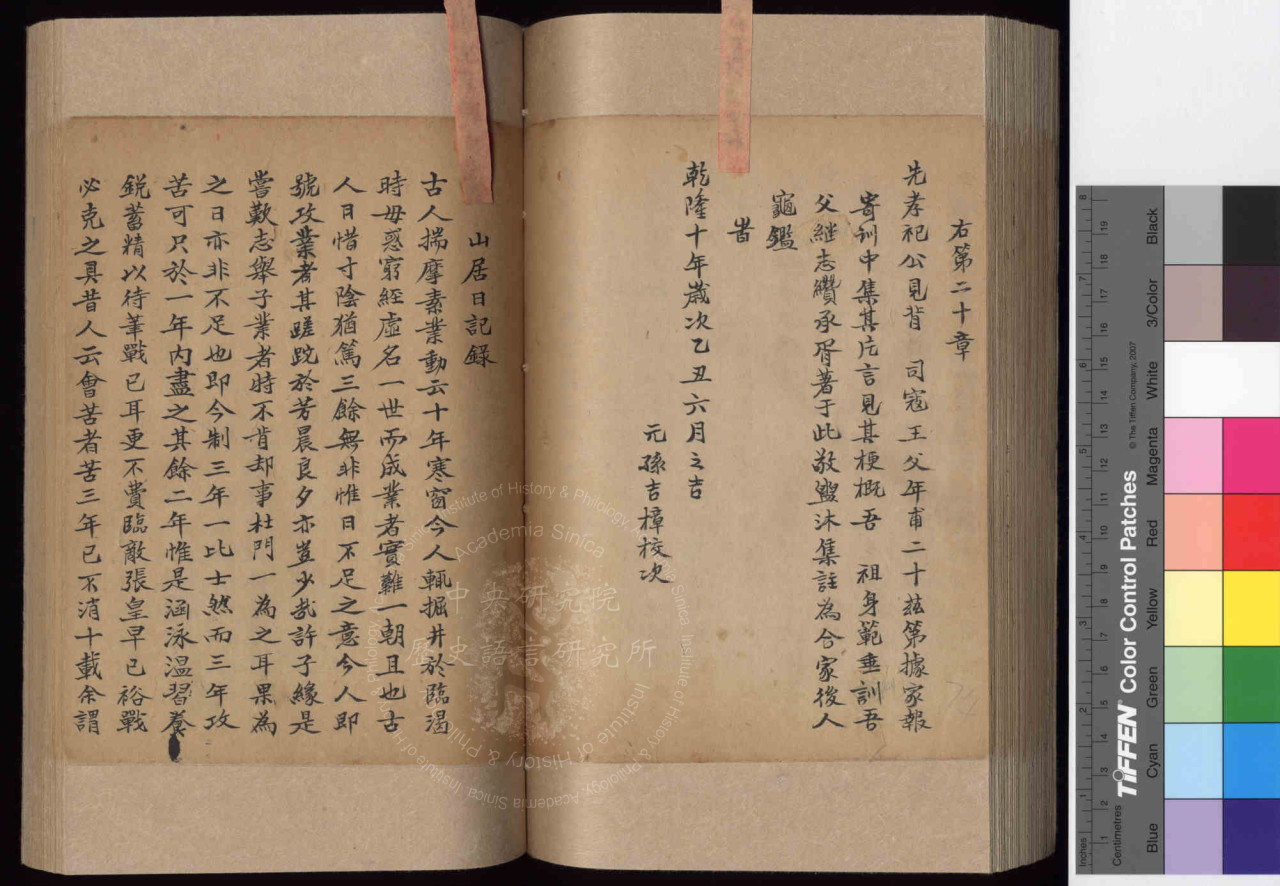 右第二十章
先孝祀公見背 司寇王父年甫二十兹第據家報
寄訓中集其片言見其梗概吾 祖身範垂訓吾
父繼志纘承胥著于此敬盥沐集註為合家後人
龜鑑
旹
乾隆十年歲次乙丑六月之吉
元孫吉樟校次
山居日記錄
古人揣摩素業動云十年寒窗今人輒掘井於臨渴
時毋惑窮經虛名一世而成業者實難一朝且也古
人日惜寸陰猶篤三餘無非惟日不足之意今人即
號攻業者其蹉跎於芳晨良夕亦豈少哉許子緣是
嘗歎志舉子業者時不肯却事杜門一為之耳果為
之日亦非不足也即今制三年一比士然而三年攻
苦可只於一年內盡之其餘二年惟是涵泳溫習養
銳蓄精以待筆戰已耳更不費臨敵張皇早已裕戰
必克之具昔人云會苦者苦三年已不消十載余謂
中央研究院
歷史語言研究所
Institute of History & Philology, Academia Sinica
TIFFEN Color Control Patches
© The Tiffen Company, 2007
Inches
Centimetres
Blue
Cyan
Green
Yellow
Red
Magenta
White
3/Color
Black